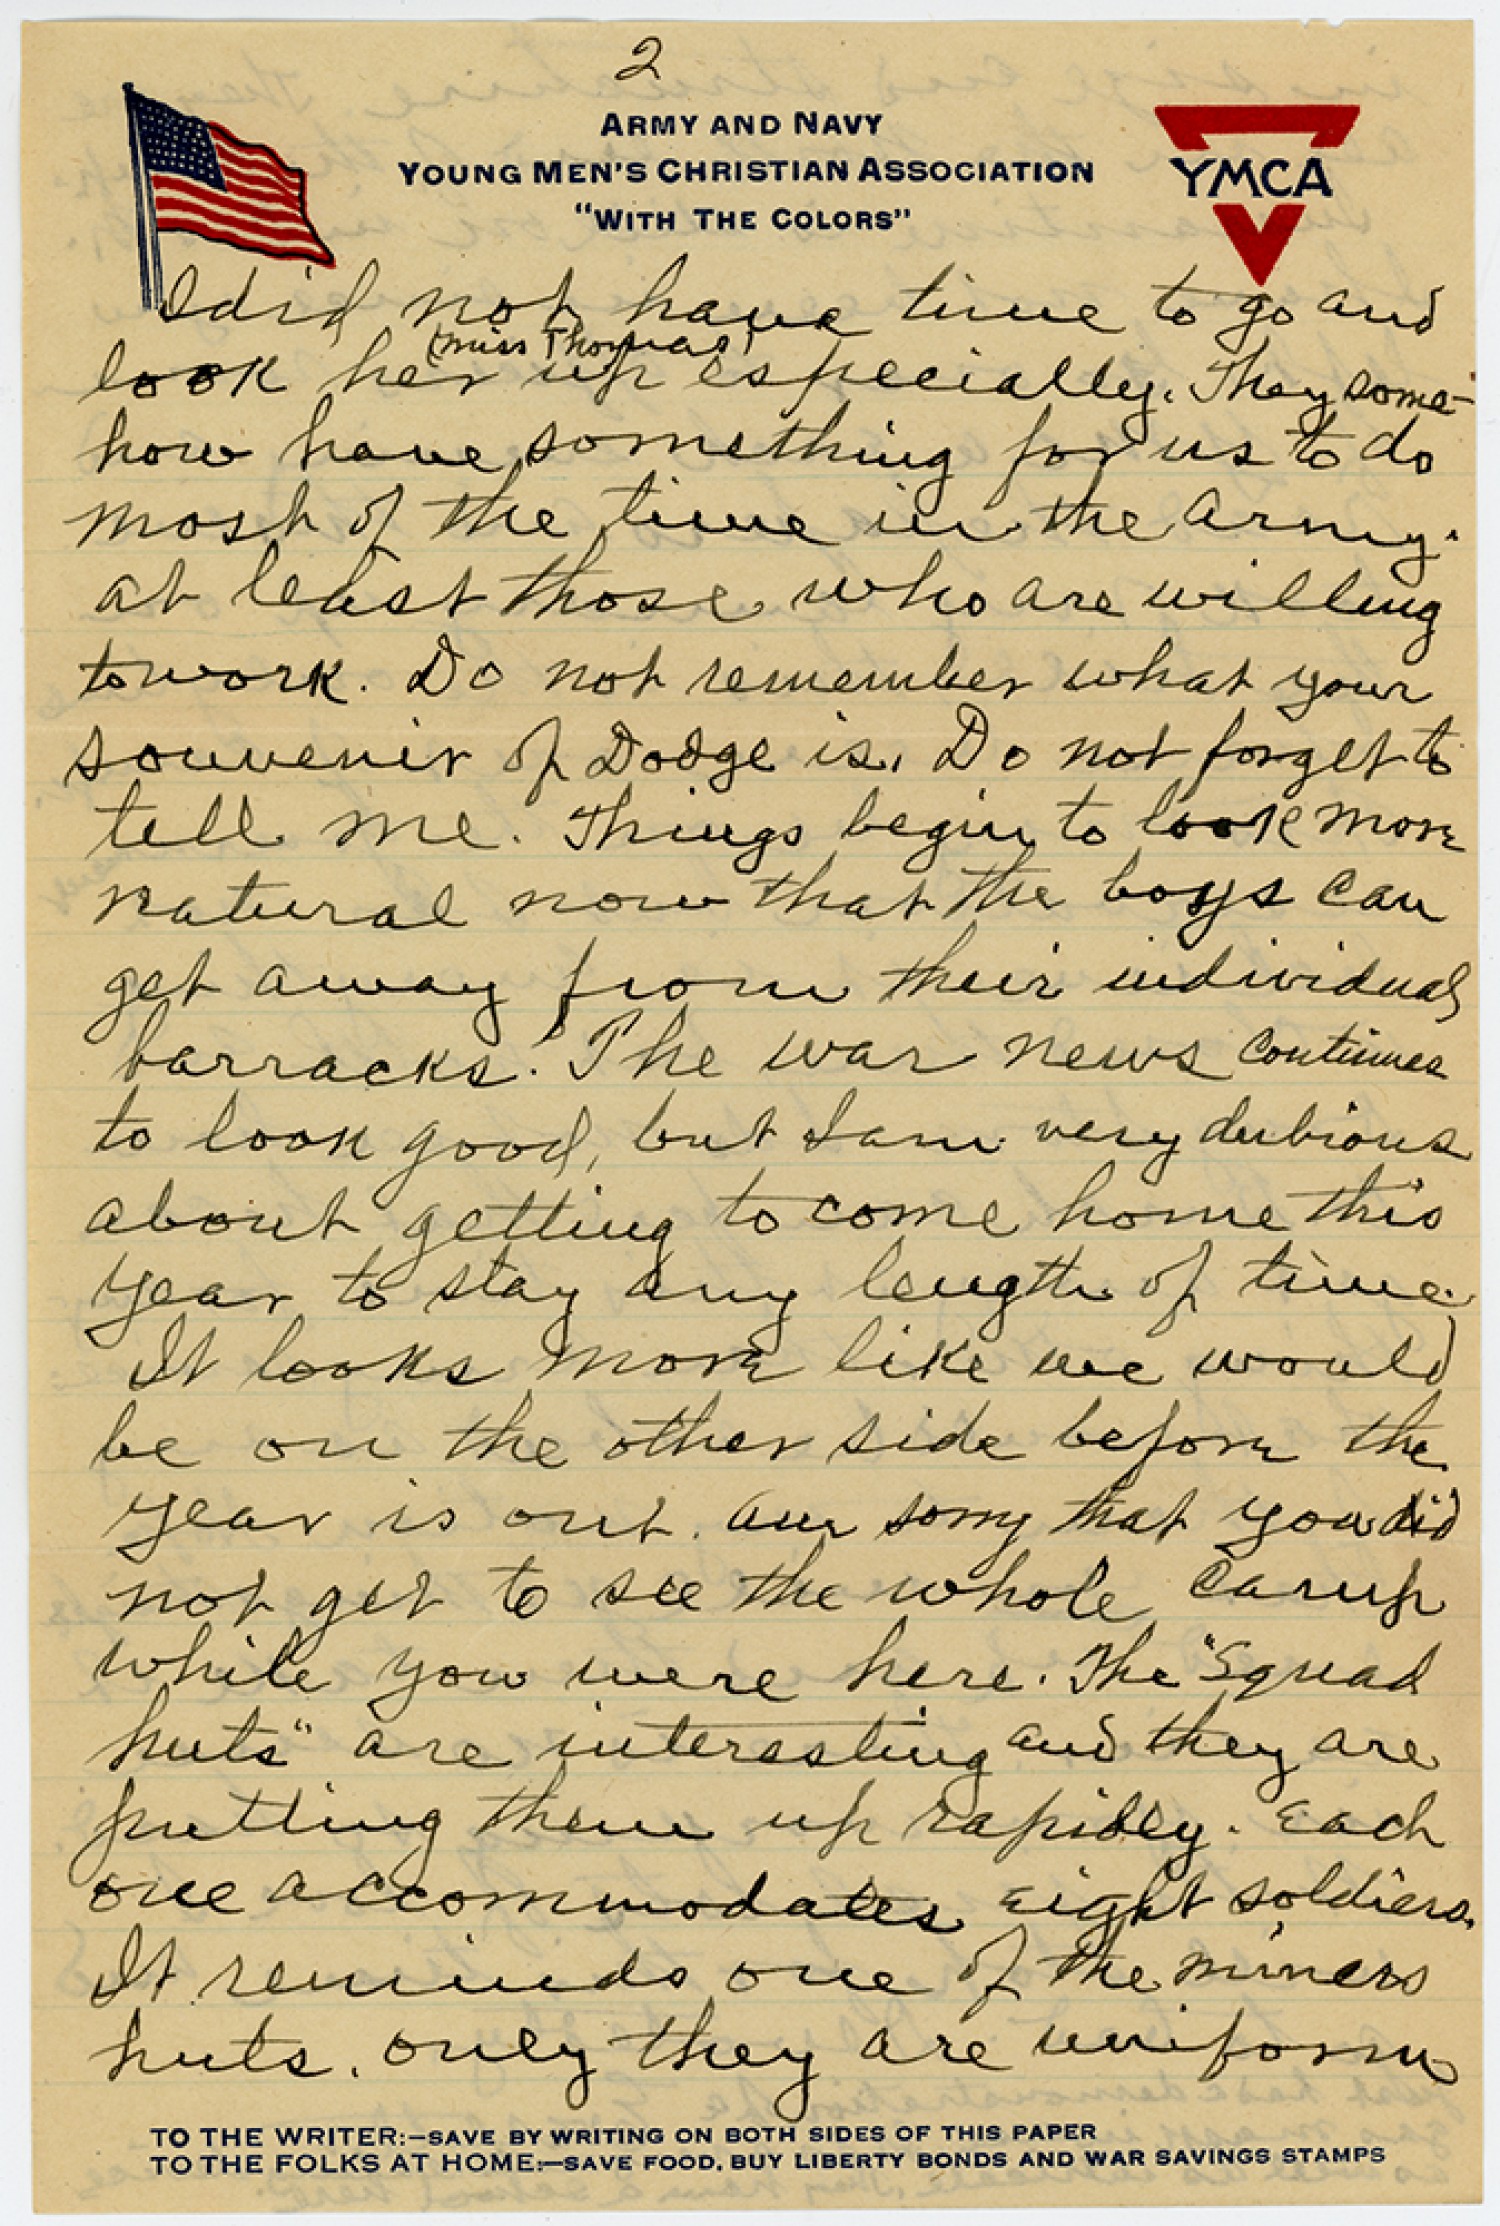 2
ARMY AND NAVY
YOUNG MEN'S CHRISTIAN ASSOCIATION
"WITH THE COLORS"
YMCA
I did not have time to go and
(Miss Thomas)
look her up especially. They some-
how have something for us to do
most of the time in the army.
at least those who are willing
to work. Do not remember what your
souvenir of Dodge is. Do not forget to
tell me. Things begin to look more
natural now that the boys can
get away from their individual
barracks. The war news continues
to look good, but I am very dubious
about getting to come home this
year to stay any length of time.
It looks more like we would
be on the other side before the
year is out. am sorry that you did
not get to see the whole camp
while you were here. The "Squad
huts" are interesting and they are
putting them up rapidly. Each
one accommodates eight soldiers.
It reminds one of the miners
huts. only they are uniform
TO THE WRITER:—SAVE BY WRITING ON BOTH SIDES OF THIS PAPER
TO THE FOLKS AT HOME:—SAVE FOOD, BUY LIBERTY BONDS AND WAR SAVINGS STAMPS